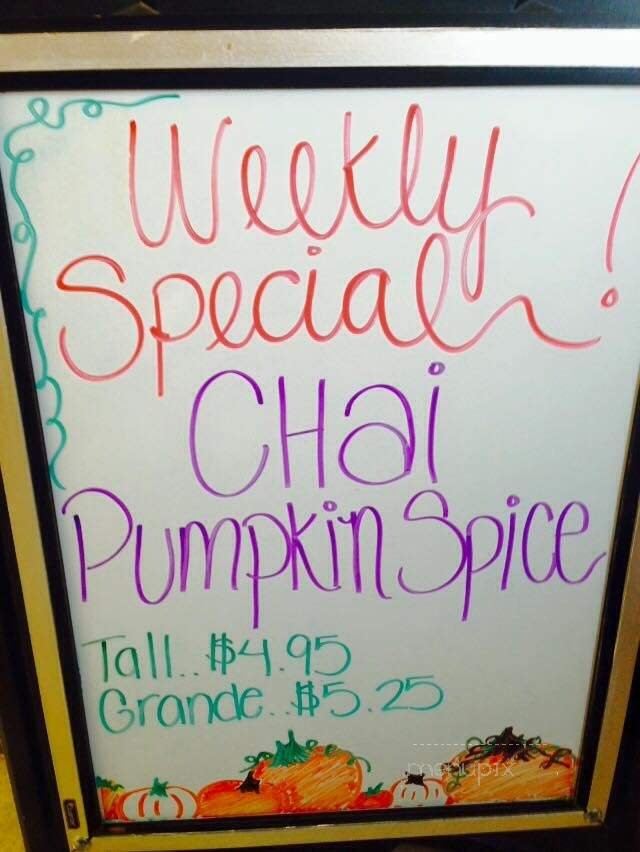 Weekly
Special !
CHai
Pumpkin Spice
Tall.. $4.95
Grande.. $5.25
menupix